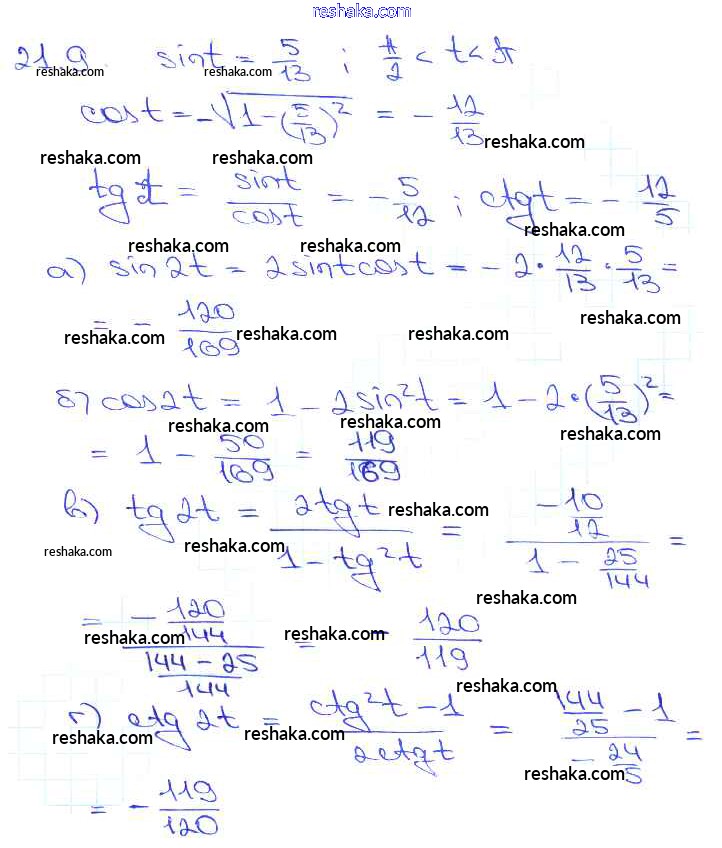 reshaka.com
21.9. sin t = 5/13 ; π/2 < t < π
reshaka.com reshaka.com reshaka.com
cos t = -√(1 - (5/13)²) = - 12/13
reshaka.com reshaka.com reshaka.com
tg t = sin t / cos t = - 5/12 ; ctg t = - 12/5
reshaka.com reshaka.com reshaka.com
а) sin 2t = 2 sin t cos t = - 2 · 12/13 · 5/13 =
= - 120/169
reshaka.com reshaka.com reshaka.com reshaka.com
б) cos 2t = 1 - 2 sin² t = 1 - 2 · (5/13)² =
reshaka.com reshaka.com reshaka.com
= 1 - 50/169 = 119/169
reshaka.com
в) tg 2t = 2 tg t / (1 - tg² t) = (- 10/12) / (1 - 25/144) =
reshaka.com reshaka.com reshaka.com
= (- 120/144) / ((144 - 25)/144) = - 120/119
reshaka.com reshaka.com
г) ctg 2t = (ctg² t - 1) / (2 ctg t) = (144/25 - 1) / (- 24/5) =
reshaka.com reshaka.com reshaka.com
= - 119/120
reshaka.com